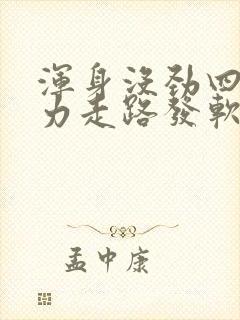 渾身沒勁四
力走路發軟
孟中康